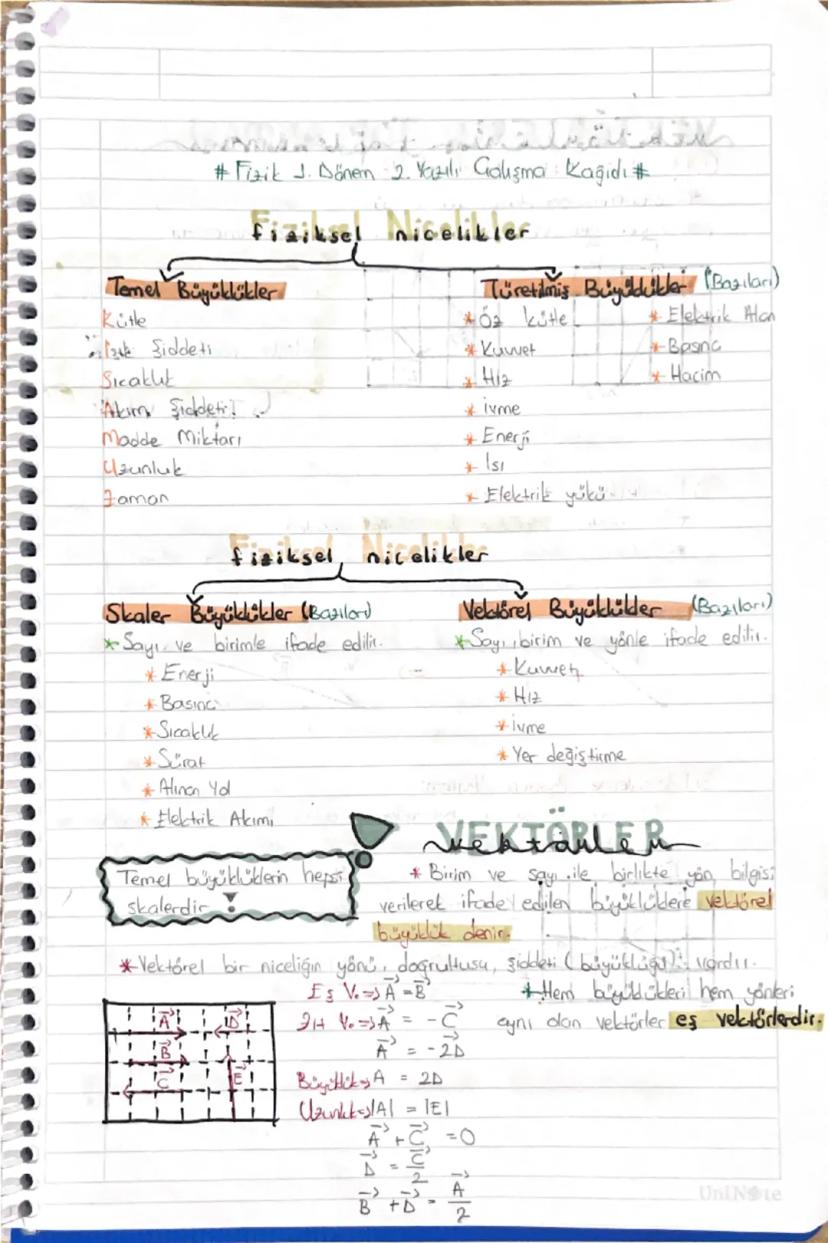 # Fizik 1. Dönem 2. Yazılı Çalışma Kağıdı #
fiziksel nicelikler
Temel Büyüklükler
Kütle
Işık Şiddeti
Sıcaklık
Akım Şiddeti
Madde Miktarı
Uzunluk
Zaman
Türetilmiş Büyüklükler (Bazıları)
* Öz kütle
* Kuvvet
* Hız
* ivme
* Enerji
* Isı
* Elektrik yükü
* Elektrik Alan
* Basınç
* Hacim
fiziksel nicelikler
Skaler Büyüklükler (Bazıları)
* Sayı ve birimle ifade edilir.
* Enerji
* Basınç
* Sıcaklık
* Sürat
* Alınan Yol
* Elektrik Akımı
Vektörel Büyüklükler (Bazıları)
* Sayı, birim ve yönle ifade edilir.
* Kuvvet
* Hız
* ivme
* Yer değiştirme
VEKTÖRLER
vektörler
Temel büyüklüklerin hepsi
skalerdir !
* Birim ve sayı ile birlikte yön bilgisi
verilerek ifade edilen büyüklüklere vektörel
büyüklük denir.
* Vektörel bir niceliğin yönü, doğrultusu, şiddeti (büyüklüğü) vardır.
* Hem büyüklükleri hem yönleri
aynı olan vektörler eş vektörlerdir.
A⃗ D⃗
B⃗
C⃗ E⃗
Eş V. => A⃗ = B⃗
Zıt V. => A⃗ = -C⃗
A⃗ = -2D⃗
Büyüklük => A = 2D
Uzunluk => |A| = |E|
A⃗ + C⃗ = 0
D⃗ = C⃗/2
B⃗ + D⃗ = A⃗/2
UniNote